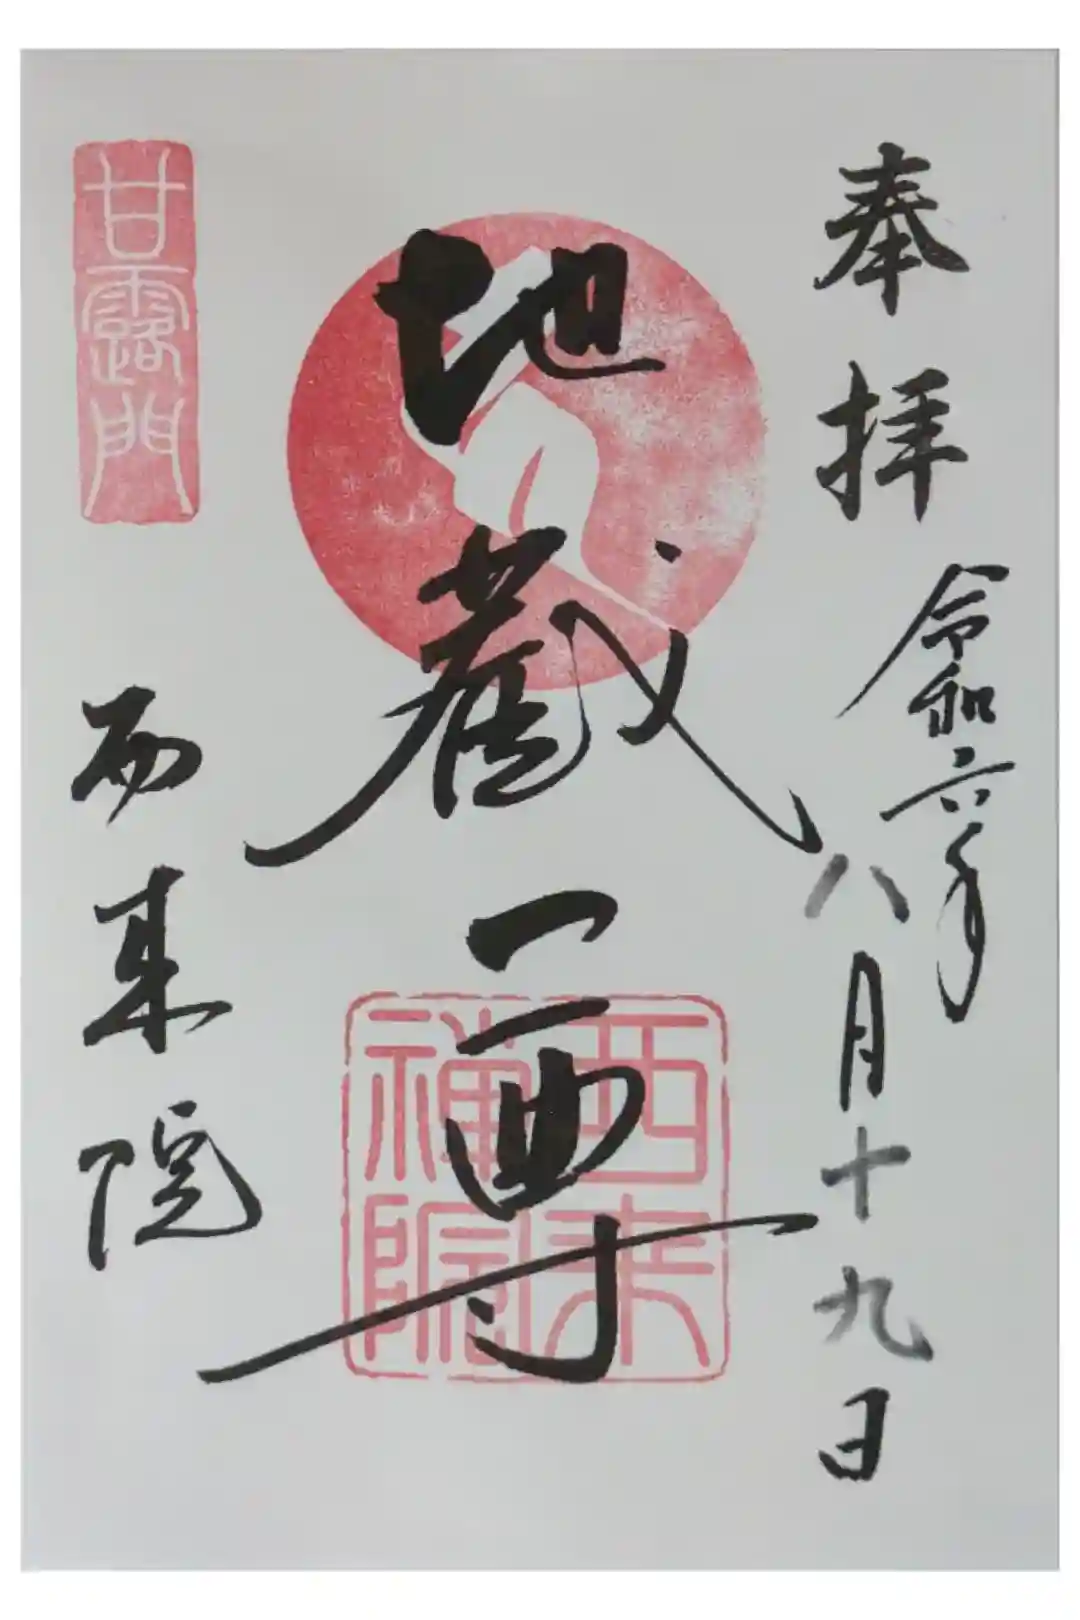 奉拝
令和六年
八月十九日
地蔵尊
西来
禅院
甘露門
西来院